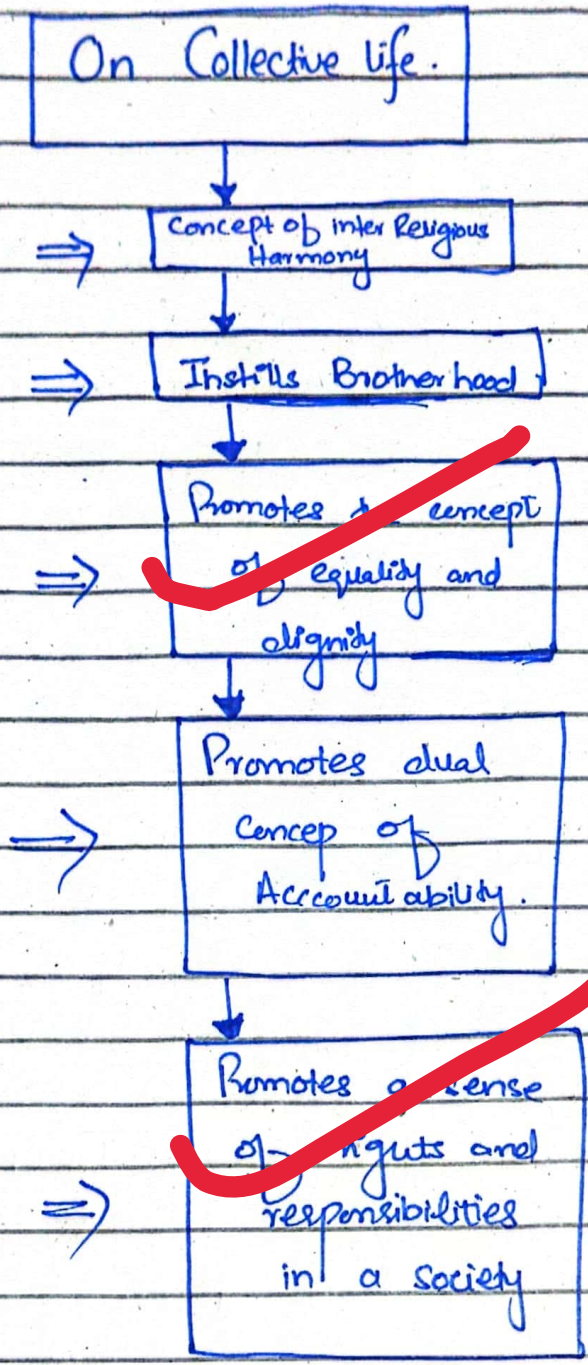 On Collective life.
Concept of inter Religious
Harmony
Instills Brotherhood
Promotes concept
of equality and
dignity
Promotes dual
Concep of
Acccountability.
Promotes a sense
of rights and
responsibilities
in a society